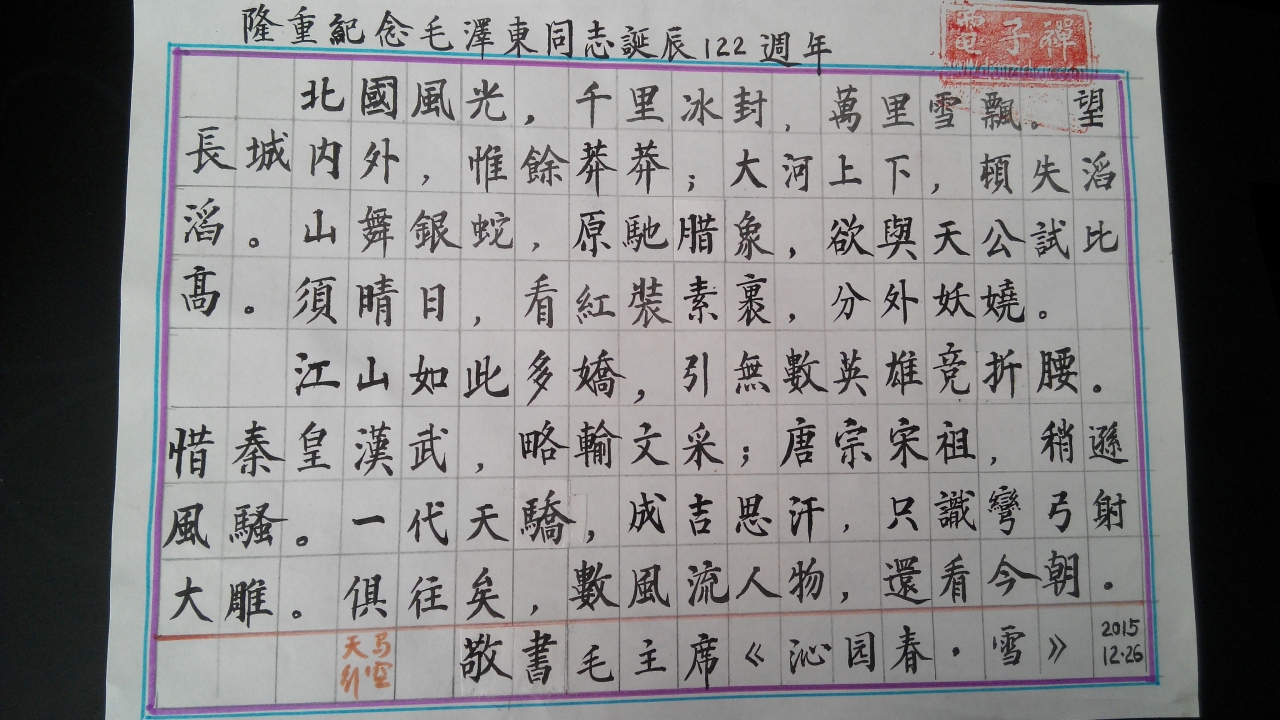 隆重紀念毛澤東同志誕辰122週年
電子禪
北國風光，千里冰封，萬里雪飄。望
長城内外，惟餘莽莽；大河上下，頓失滔
滔。山舞銀蛇，原馳腊象，欲與天公試比
高。須晴日，看紅裝素裹，分外妖嬈。
江山如此多嬌，引無數英雄竞折腰。
惜秦皇漢武，略輸文采；唐宗宋祖，稍遜
風騷。一代天驕，成吉思汗，只識彎弓射
大雕。俱往矣，數風流人物，還看今朝。
敬書毛主席《沁园春·雪》
2015
12·26